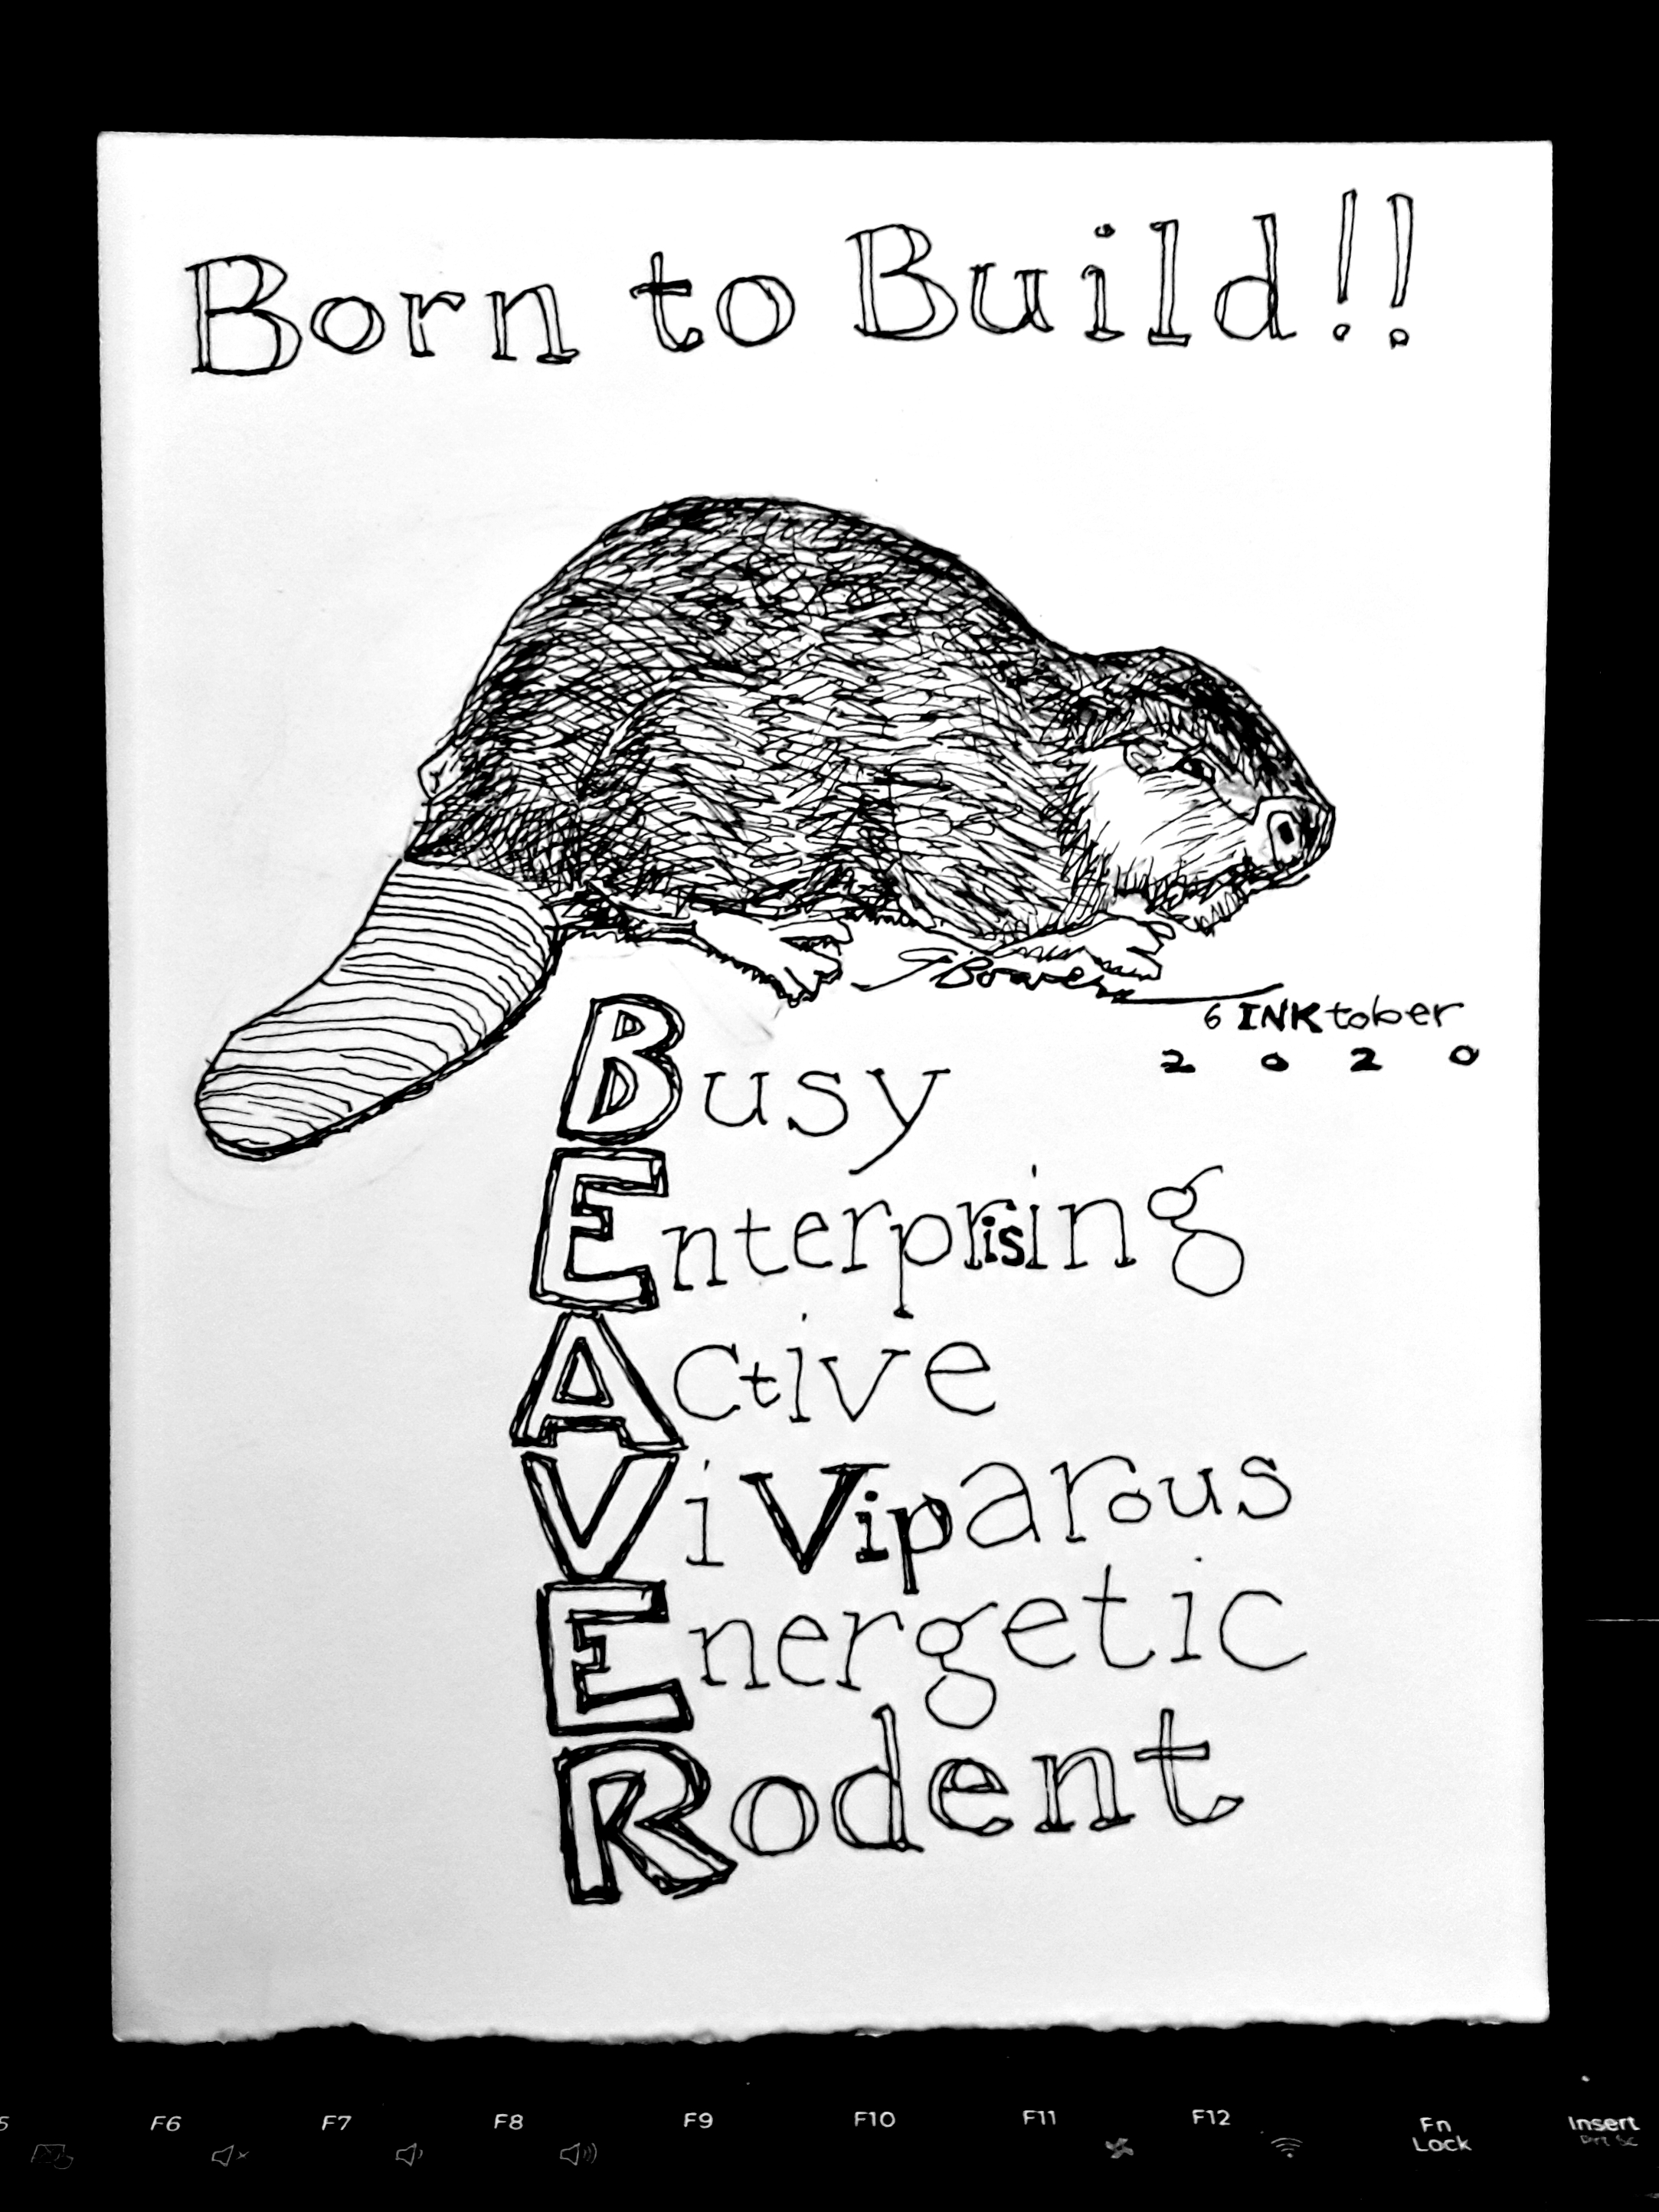 Born to Build!!
G Bowers
6 INKtober
2020
Busy
Enterprising
Active
ViViparous
Energetic
Rodent
F6 F7 F8 F9 F10 F11 F12 Fn Lock Insert